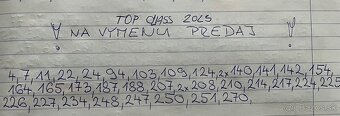 TOP CLASS 2025
! NA VÝMENU PREDAJ !
4, 7, 11, 22, 24, 94, 103, 109, 124, 2x140, 141, 142, 154,
164, 165, 173, 187, 188, 207, 2x208, 210, 214, 217, 224, 225
226, 227, 234, 248, 247, 250, 251, 270.